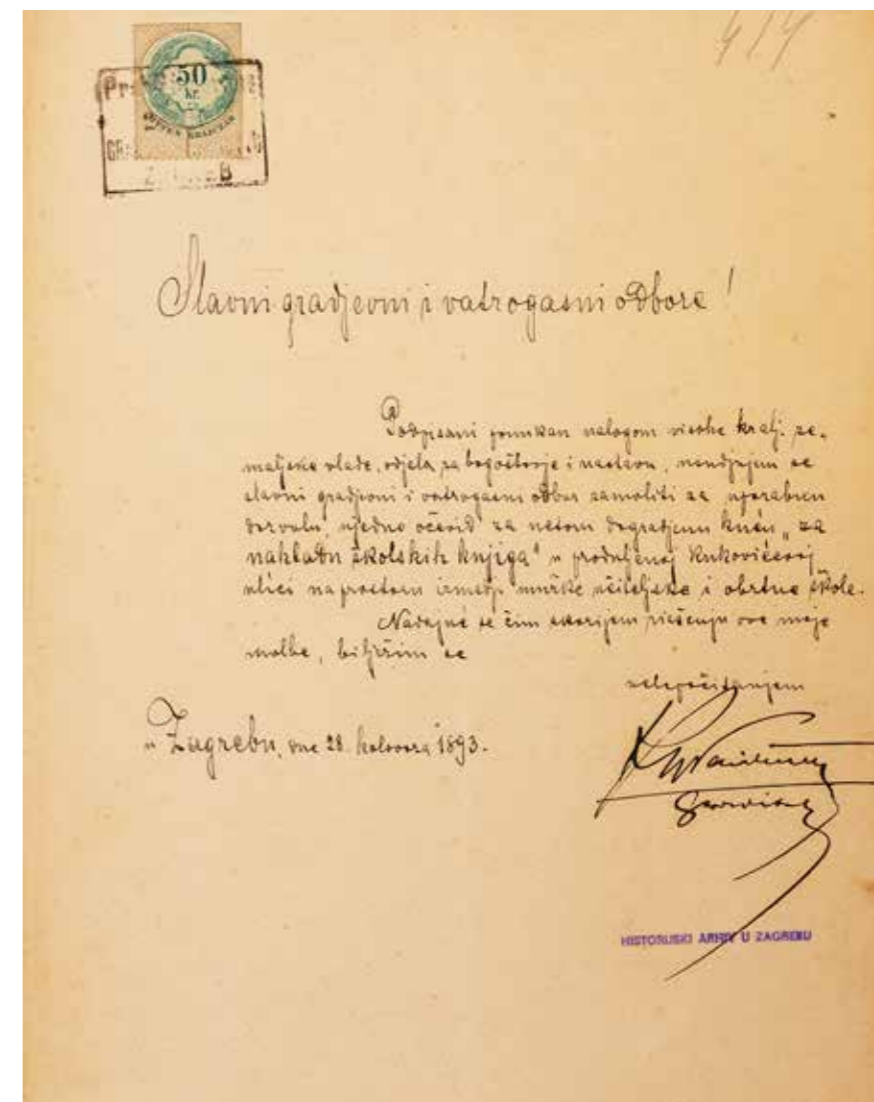 414
50
kr.
ZAGREB
Slavni gradjevni i vatrogasni odbore!
Podpisani ponukan nalogom visoke kralj. ze-
maljske vlade, odjela za bogoštovje i nastavu, usudjujem se
slavni gradjevni i vatrogasni odbor zamoliti za uporabnu
dozvolu, ujedno očevid za netom dogradjenu kuću „za
nakladu školskih knjiga" u produljenoj Kukovićevoj
ulici na prostoru izmedju mužke učiteljske i obrtne škole.
Nadajuć se čim skorijem riešenju ove moje
molbe, biljžim se
velepočitanjem
u Zagrebu, dne 28. kolovoza 1893.
HISTORIJSKI ARHIV U ZAGREBU